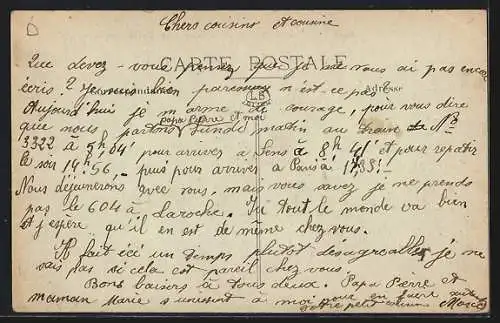 Chers cousins et cousine
CARTE POSTALE
Que devez-vous pensez que je ne vous ai pas encore
Correspondance
Adresse
LB
écris ? Je suis bien paresseux n'est ce pas ?
Aujourd'hui je m'arme de courage, pour vous dire
papa Pierre et moi
que nous partons lundi matin au train N°
3322 à 5h04' pour arriver à Sens à 8h 41' et pour repartir
le soir 14h 56, puis pour arriver à Paris à
Nous déjeunerons avec vous, mais vous savez je ne prends
pas le 604 à Laroche. Ici tout le monde va bien
et j'espère qu'il en est de même chez vous.
Il fait ici un temps plutôt désagréable, je ne
sais pas si cela est pareil chez vous.
Bons baisers à tous deux. Papa Pierre et
maman Marie s'unissent à moi pour en faire autant
Votre petit cousin Marcel